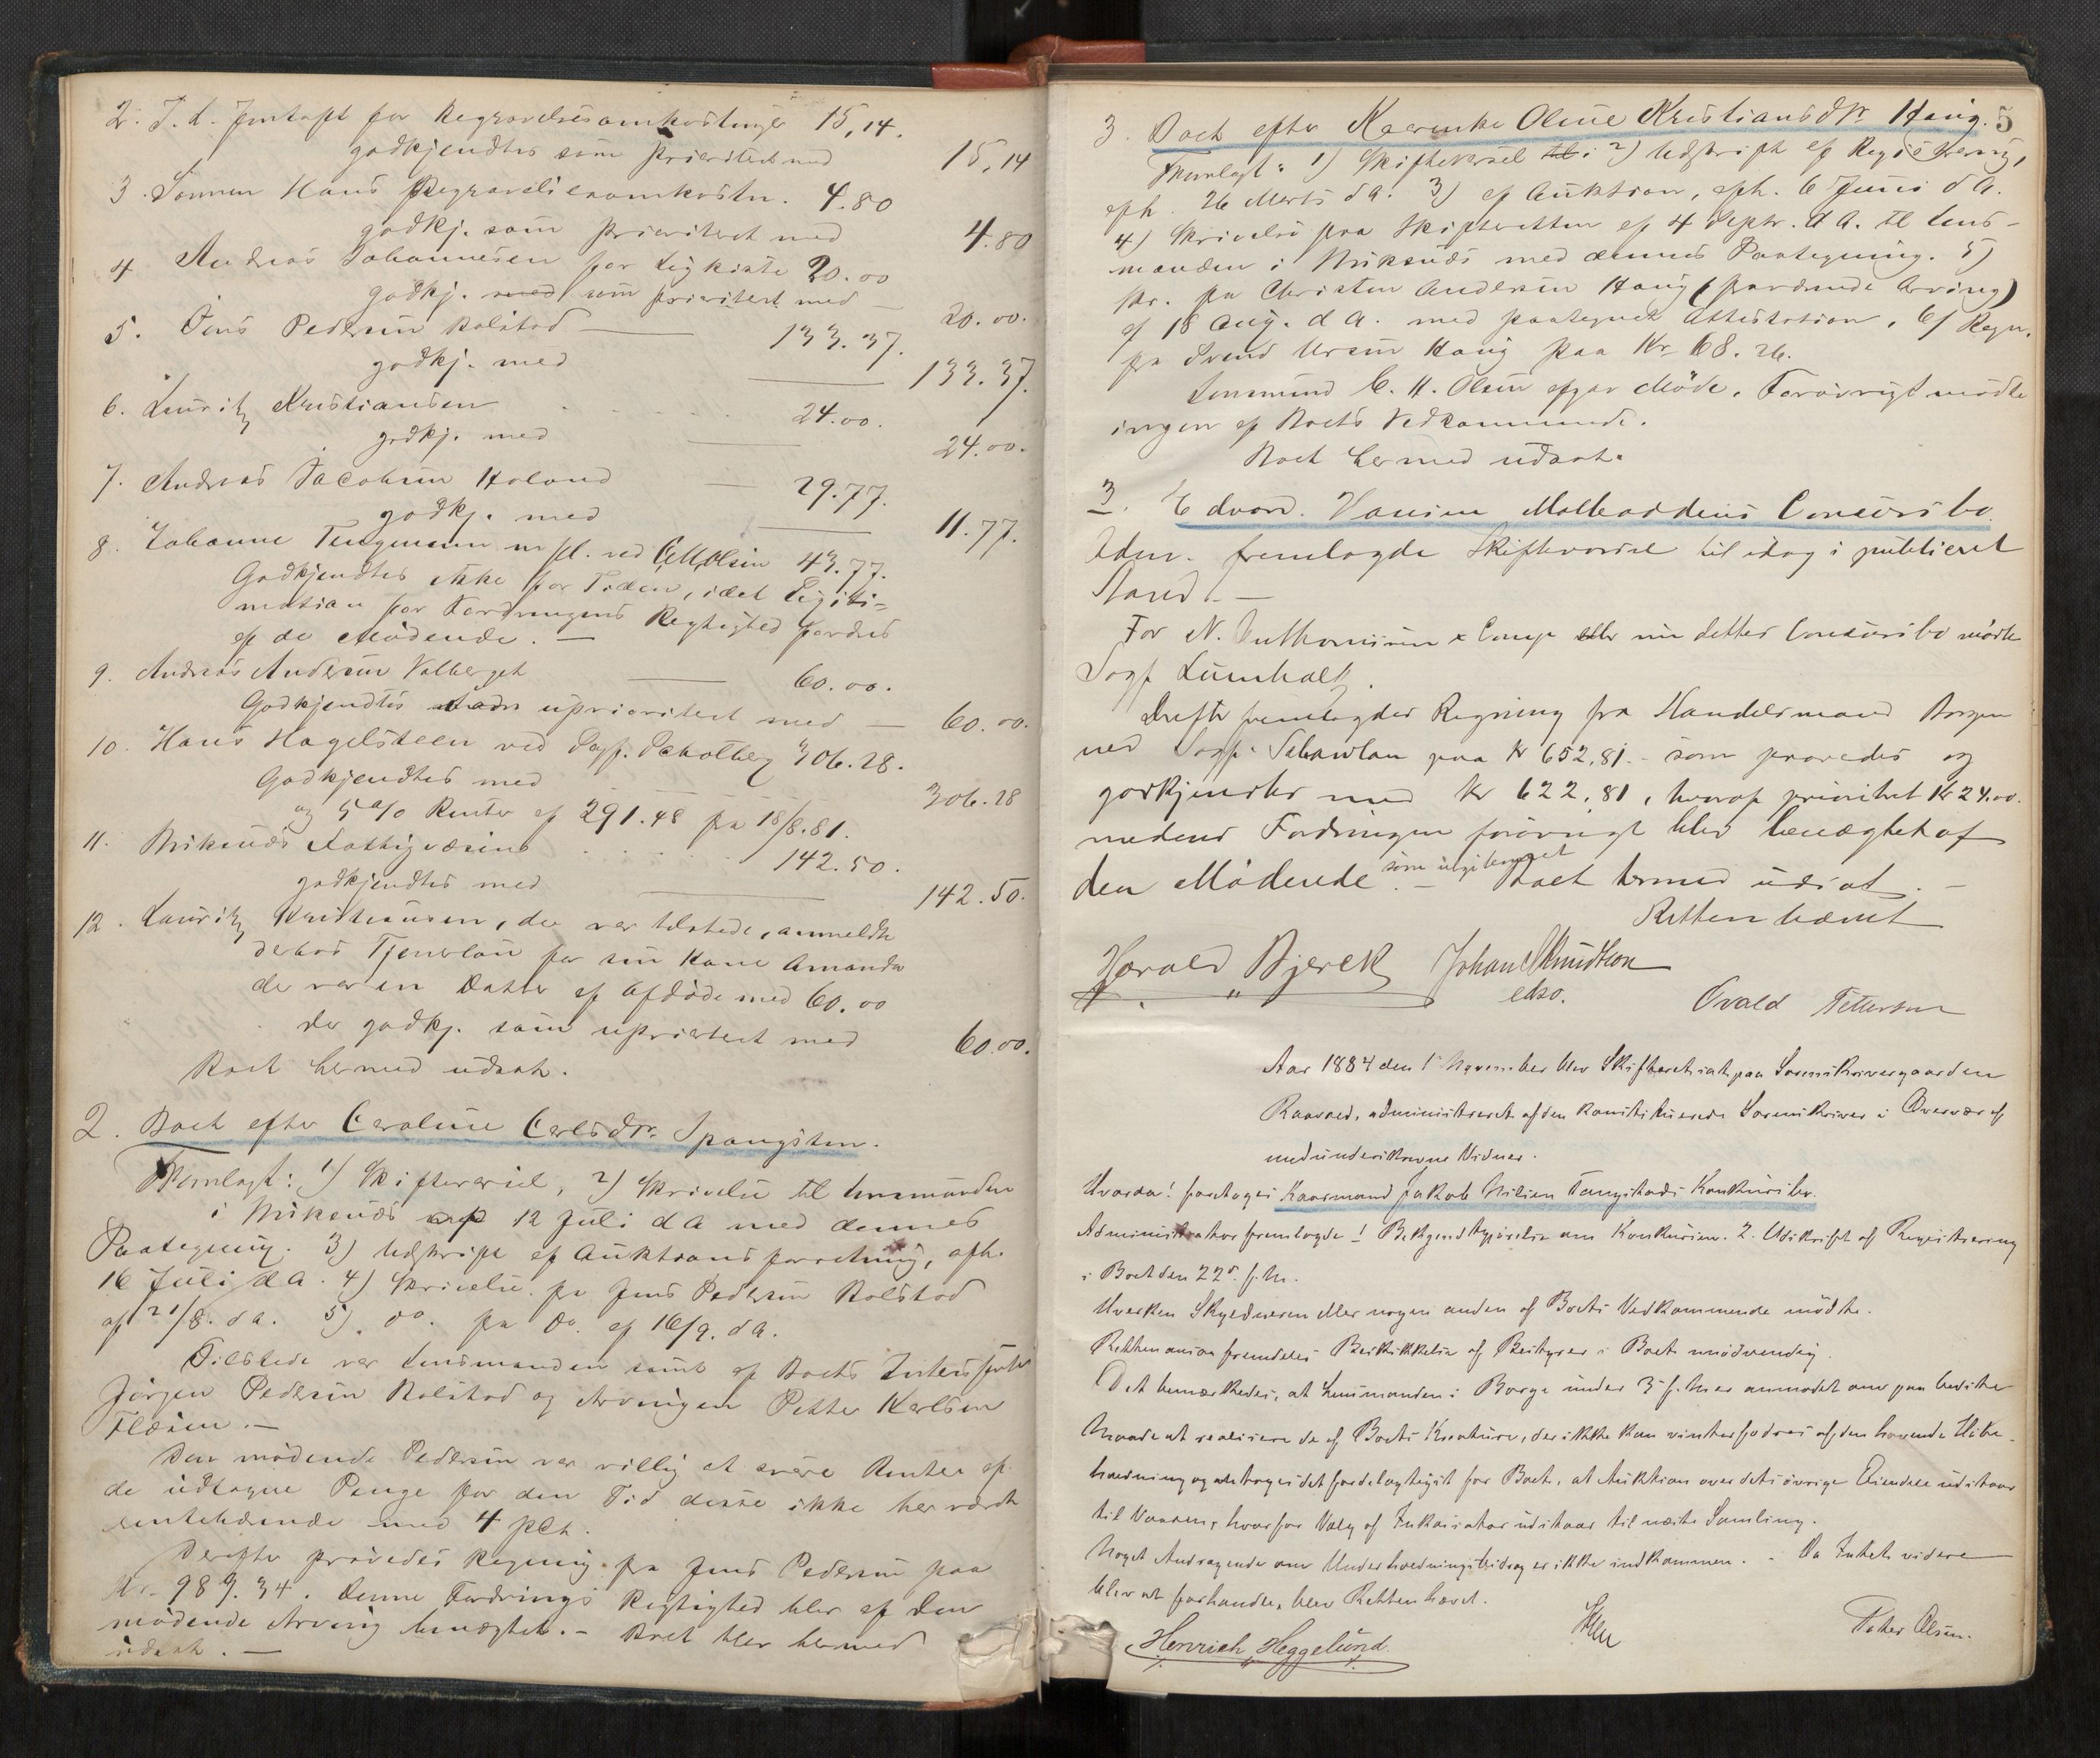 2. I. d. for Begravelsesomkostninger 15,14.
godkjendtes som prioriteret med 15,14
3. Sønnen Hans Begravelsesomkostn. 4.80
godkj. som prioriteret med 4.80
4 Andreas Johannesen for Ligkiste 20.00
godkj. som prioritert med — 20.00.
5. Jens Pedersen Bolstad — 133.37.
godkj. med — 133.37.
6. Lauritz Kristiansen 24.00.
godkj. med — 24.00.
7. Andreas Jacobsen Holand — 29.77.
godkj. med — 11.77.
8. Johanne m. fl. ved Olsen 43.77.
Godkjendtes ikke for Tiden, idet Legiti-
mation for Fordringens Rigtighed fordres
af de Mødende. —
9. Andreas Andersen Valberget — 60.00.
Godkjendtes uprioritert med — 60.00.
10. Hans Hagelsteen ved Sagf. 306.28.
Godkjendtes med 306.28
og 5 % Renter af 291.48 fra 18/8.81.
11. Buksnes Fattigvæsen 142.50.
godkjendtes med — 142.50.
12. Lauritz Kristiansen, der var tilstede, anmeldte
derhos Tjenerløn for sin Kone Amanda
der var en Datter af Afdøde med 60.00
der godkj. som uprioritert med 60.00.
Boet hermed udsat.
2. Boet efter Caroline Carlsdtr. Spangsten.
Fremlagt: 1) Skiftevarsel, 2) Skrivelse til Lensmanden
i Buksnes af 12 Juli d A med dennes
Paategning. 3) Udskrift af Auktionsforretning, afh.
16 Juli d A. 4) Skrivelse fra Jens Pedersen Bolstad
af 21/8. d A. 5) do. fra Do. af 16/9. d A.
Tilstede var Lensmanden samt af Boets
Jørgen Pedersen Bolstad og Arvingen Petter Karlsen
—
Den mødende Pedersen var villig at svare Renter af
de udtagne Penge for den Tid disse ikke har været
rentebærende med 4 pCt.
Derefter prøvedes Regning fra Jens Pedersen paa
Kr. 989.34. Denne Fordrings Rigtighed blev af den
mødende Arving benægtet. — Boet blev hermed
udsat. —
5
3. Boet efter Oline Kristiansdtr. Haug.
Fremlagt: 1) Skiftevarsel 2) Udskrift af Registrering,
afh. 26 Marts d A. 3) af Auktion, afh. 6 Juni d A.
4) Skrivelse fra Skifteretten af 4 Septr. d A. til Lens-
manden i Buksnes med dennes Paategning. 5)
Skr. fra Christen Andersen Haug (Arving)
af 18 Aug. d A. med paategnet Attestation. 6) Regn.
fra Svend Haug paa Kr. 68.26.
Lensmand C. H. Olsen afgav Møde. Forøvrigt mødte
ingen af Boets Vedkommende.
Boet hermed udsat.
3. Edvard Hansen Concursbo
Adm. fremlagde Skiftevarsel til idag i publiceret
Stand. —
For N. & Comp nu dettes Concursbo mødte
Sagf
Derefter fremlagdes Regning fra Handelsmand
ved Sagf. paa Kr 652,81. — som prøvedes og
godkjendtes med Kr 622,81, hvoraf prioritet Kr 24.00.
medens Fordringen forøvrigt blev benægtet af
den Mødende som — Boet hermed udsat. —
Retten hævet
Harald Bjerck Johan Knudtson
Osvald Pettersen
Aar 1884 den 1 November blev Skifteret sat paa Sorenskrivergaarden
Raavaed, administreret af den konstituerede Sorenskriver i Overvær af
medunderskrevne Vidner.
Hvorda! foretoges Kaarmand Jakob Nilsen Tangstads Konkursbo.
Administrator fremlagde 1 Bekjendtgjørelse om Konkursen. 2. Udskrift af Registrering
i Boet den 22d. f. M.
Hverken Skyldneren eller nogen anden af Boets Vedkommende mødte.
Retten ansaa fremdeles Beskikkelse af Bestyrer i Boet unødvendig.
Det bemærkedes, at Lensmanden i Borge under 3 f. M er anmodet om paa bedste
Maade at realisere de af Boets Kreature, der ikke kan vinterfodres af den havende
og antoges det fordelagtigst for Boet, at Auktion over dets øvrige Eiendele udstaar
til Vaaren, hvorfor Valg af Inkassator udstaar til næste Samling.
Noget Andragende om Underholdningsbidrag er ikke indkommen. — Da Intet videre
blev at forhandle, blev Retten hævet.
Henrich Heggelund. Peter Olsen.